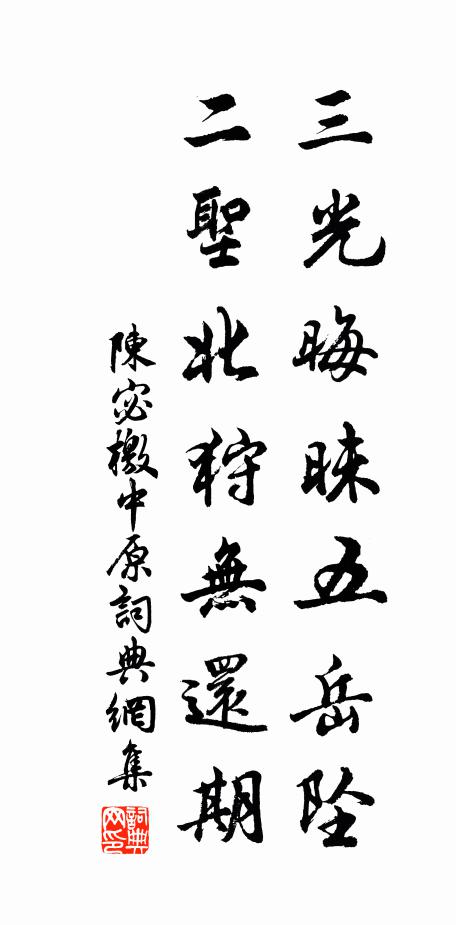 三光晦昧五岳墜
二聖北狩無還期
陳宓檄中原詞典網集
詞典网印